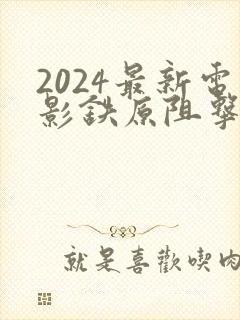 2024最新電
影鉄原阻擊
就是喜歡喫肉